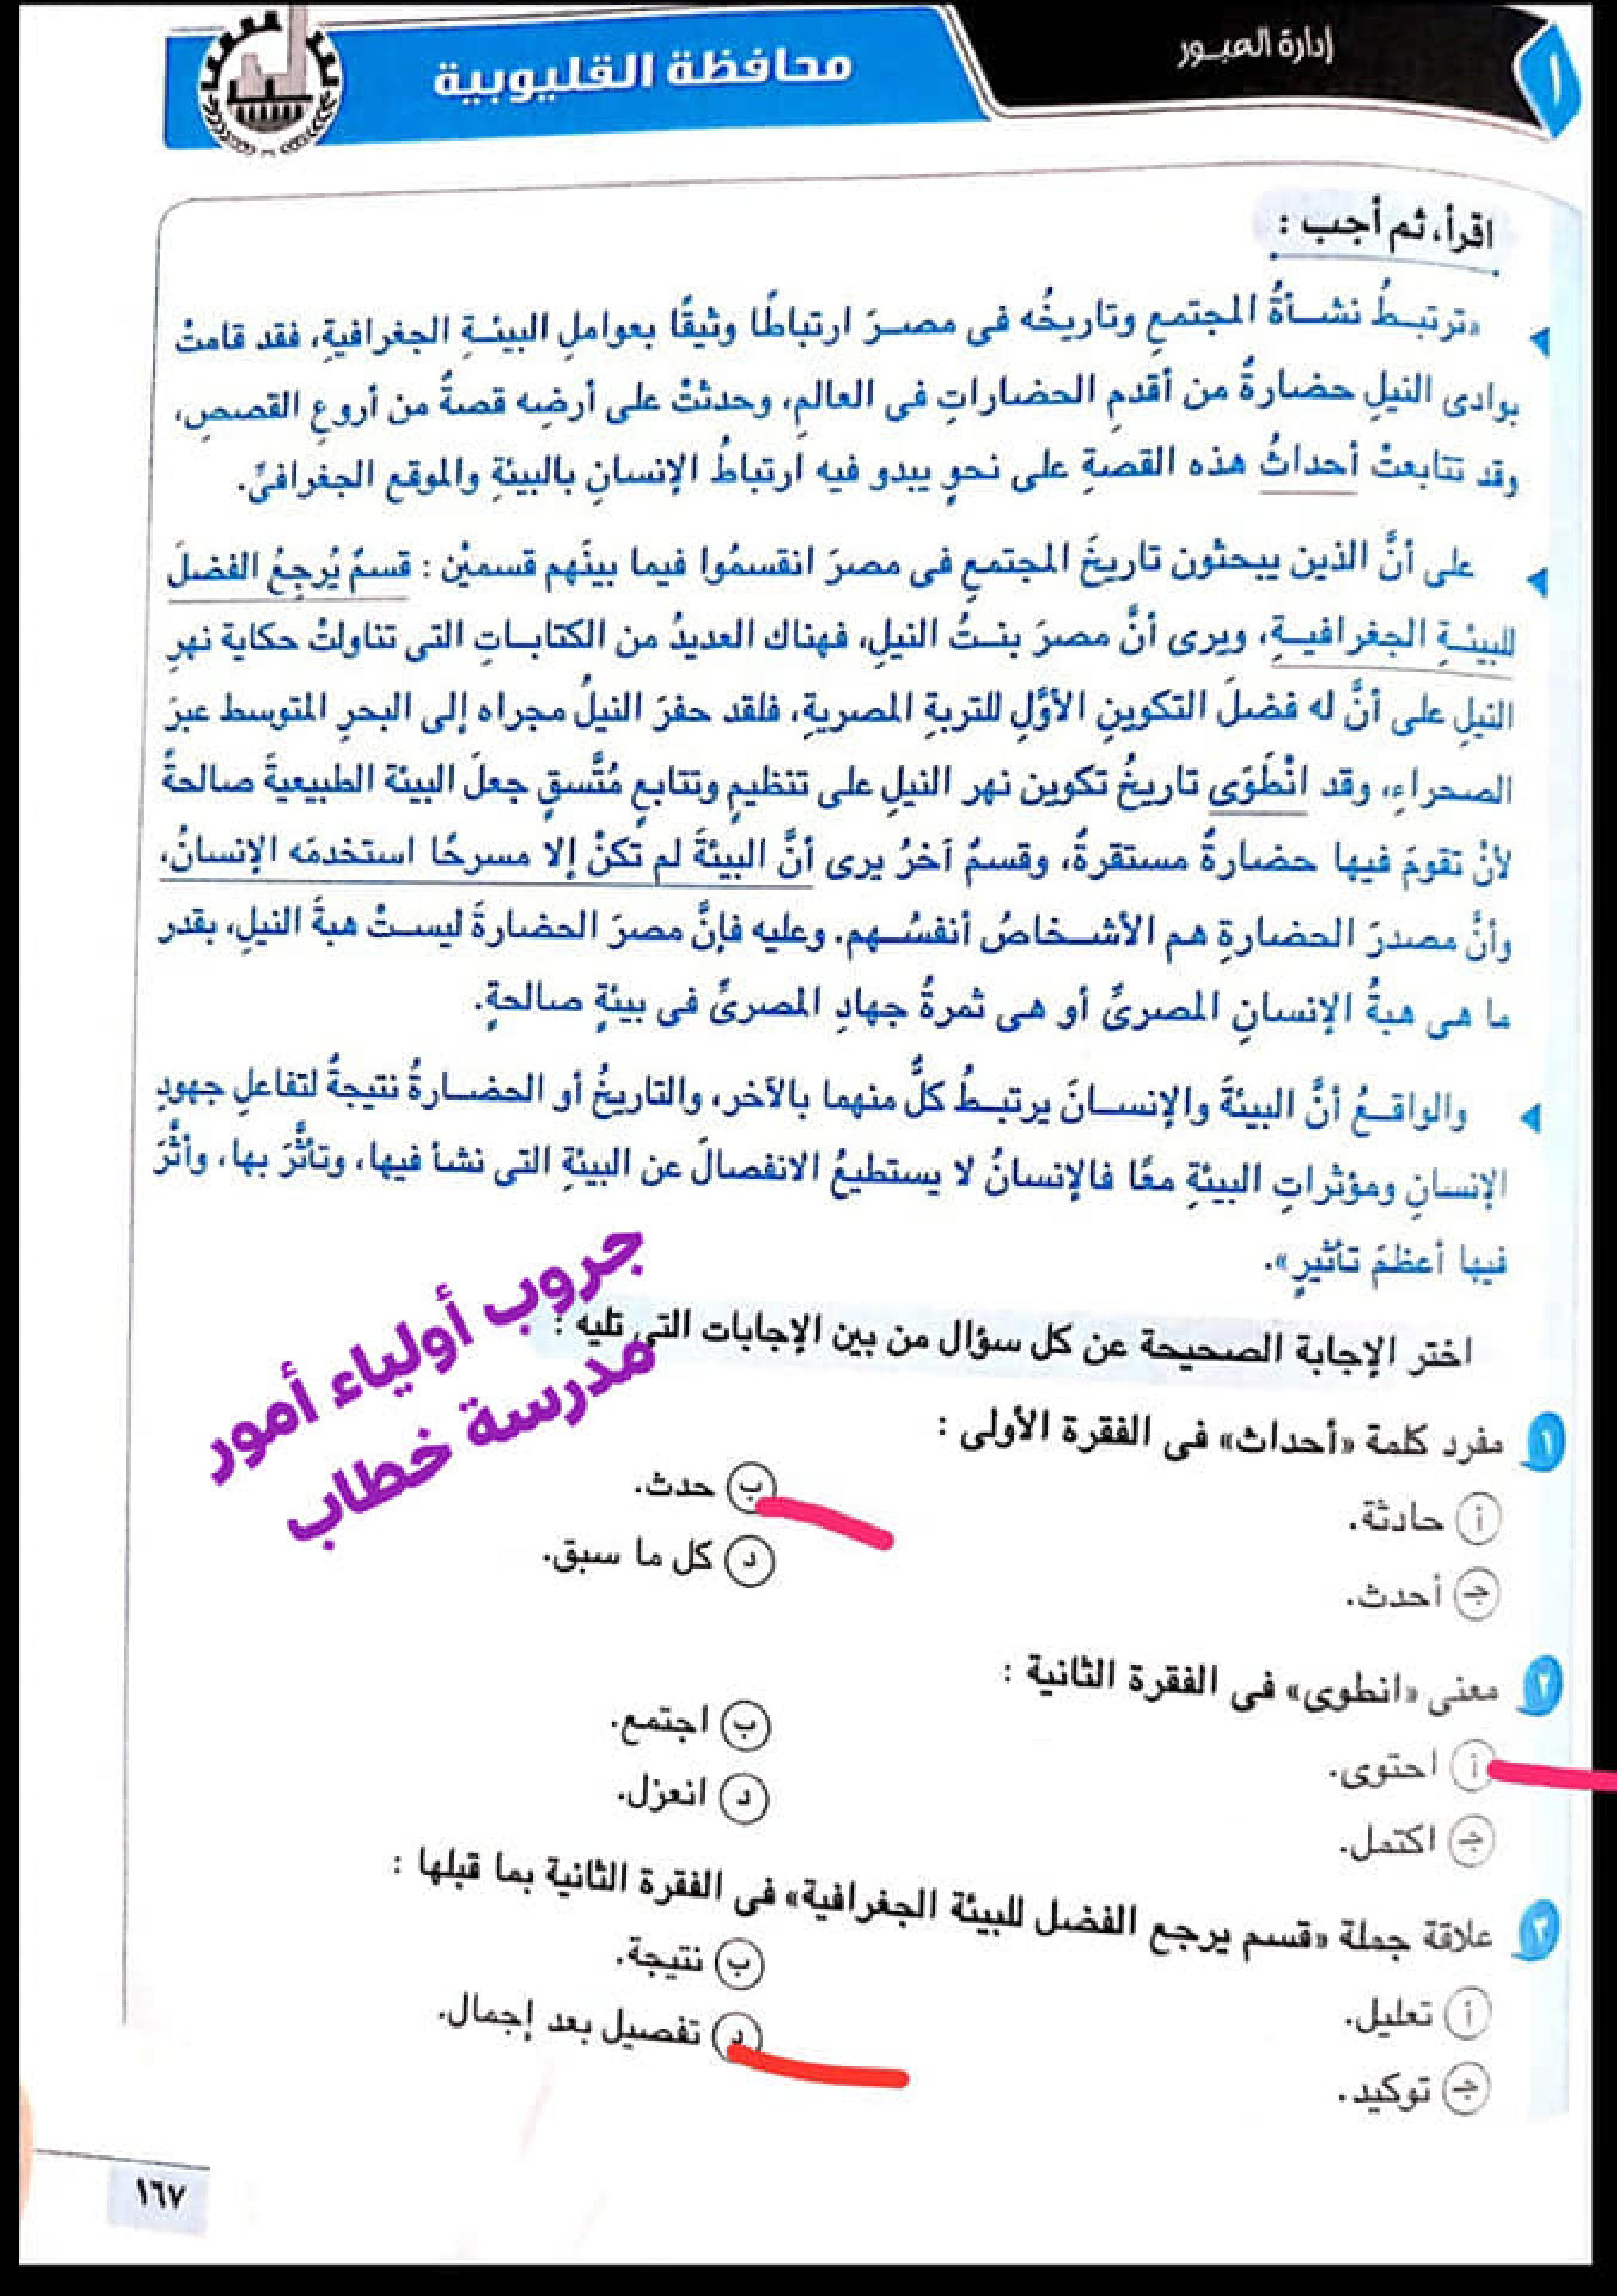 ١
إدارة العبـور
محافظة القليوبية
اقرأ، ثم أجب :
«ترتبـطُ نشـأةُ المجتمعِ وتاريخُه فى مصـرَ ارتباطًا وثيقًا بعواملِ البيئـةِ الجغرافيةِ، فقد قامتْ
بوادى النيلِ حضارةٌ من أقدمِ الحضاراتِ فى العالمِ، وحدثتْ على أرضِه قصةٌ من أروعِ القصصِ،
وقد تتابعتْ أحداثُ هذه القصةِ على نحوٍ يبدو فيه ارتباطُ الإنسانِ بالبيئةِ والموقعِ الجغرافىِّ.
على أنَّ الذين يبحثون تاريخَ المجتمعِ فى مصرَ انقسمُوا فيما بينَهم قسميْن : قسمٌ يُرجِعُ الفضلَ
للبيئـةِ الجغرافيـةِ، ويرى أنَّ مصرَ بنـتُ النيلِ، فهناك العديدُ من الكتابـاتِ التى تناولتْ حكاية نهرِ
النيلِ على أنَّ له فضلَ التكوينِ الأوَّلِ للتربةِ المصريةِ، فلقد حفرَ النيلُ مجراه إلى البحرِ المتوسط عبرَ
الصحراءِ، وقد انْطَوَى تاريخُ تكوين نهر النيلِ على تنظيمٍ وتتابعٍ مُتَّسقٍ جعلَ البيئة الطبيعيةَ صالحةً
لأنْ تقومَ فيها حضارةٌ مستقرةٌ، وقسمٌ آخرُ يرى أنَّ البيئةَ لم تكنْ إلا مسرحًا استخدمَه الإنسانُ،
وأنَّ مصدرَ الحضارةِ هم الأشـخاصُ أنفسُـهم. وعليه فإنَّ مصرَ الحضارةَ ليسـتْ هبةَ النيلِ، بقدر
ما هى هبةُ الإنسانِ المصرىِّ أو هى ثمرةُ جهادِ المصرىِّ فى بيئةٍ صالحةٍ.
والواقـعُ أنَّ البيئةَ والإنسـانَ يرتبـطُ كلٌّ منهما بالآخر، والتاريخُ أو الحضـارةُ نتيجةٌ لتفاعلِ جهودِ
الإنسانِ ومؤثراتِ البيئةِ معًا فالإنسانُ لا يستطيعُ الانفصالَ عن البيئةِ التى نشأ فيها، وتأثَّرَ بها، وأثَّرَ
فيها أعظمَ تأثيرٍ».
جروب أولياء أمور
مدرسة خطاب
اختر الإجابة الصحيحة عن كل سؤال من بين الإجابات التى تليه :
١ مفرد كلمة «أحداث» فى الفقرة الأولى :
أ حادثة. ب حدث.
جـ أحدث. د كل ما سبق.
٢ معنى «انطوى» فى الفقرة الثانية :
أ احتوى. ب اجتمع.
جـ اكتمل. د انعزل.
٣ علاقة جملة «قسم يرجع الفضل للبيئة الجغرافية» فى الفقرة الثانية بما قبلها :
أ تعليل. ب نتيجة.
جـ توكيد. د تفصيل بعد إجمال.
١٦٧